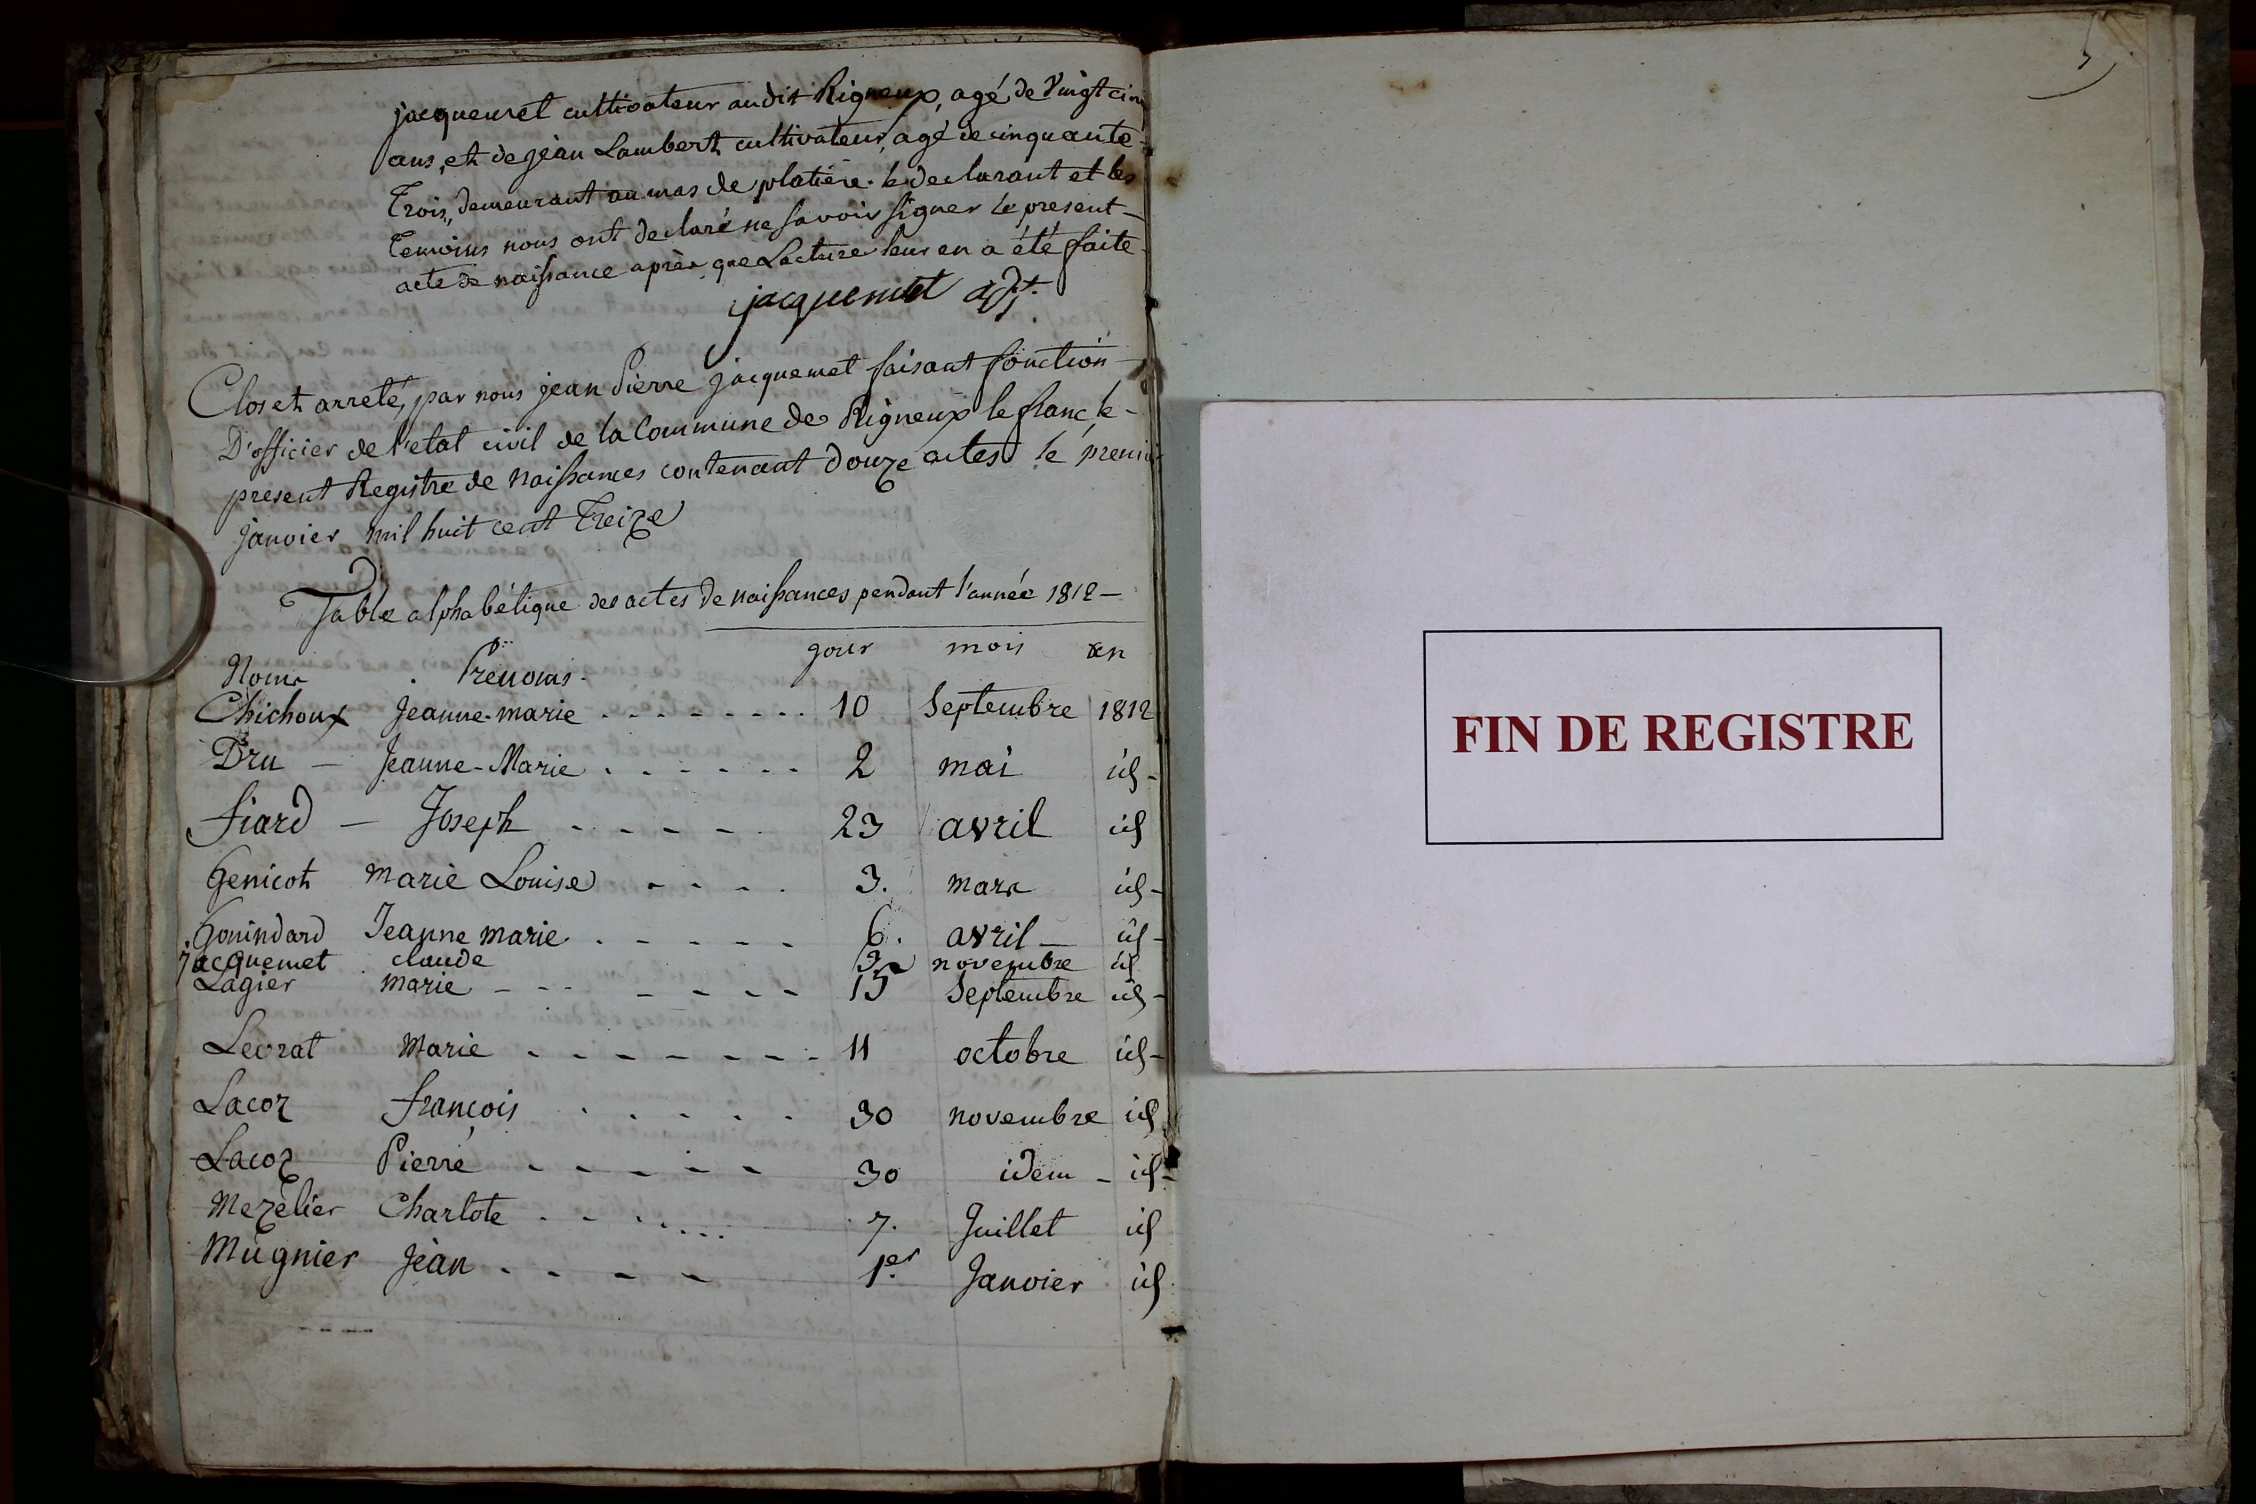 jacquemet cultivateur audit Rigneux, agé de Vingt cinq
ans, et de jean Lambert cultivateur, agé de cinquante
Trois, demeurant au mas de platière. le declarant et les
Temoins nous ont declaré ne savoir signer le present
acte de naissance après que Lecture leur en a été faite
jacquemet adjt.
Clos et arreté, par nous jean Pierre jacquemet faisant fonction
D'officier de l'etat civil de la Commune de Rigneux le franc, le
present Registre de naissances contenant douze actes le premier
janvier mil huit cent Treize
Table alphabétique des actes de naissances pendant l'année 1812
Noms Prenoms jour mois an
Chichoux Jeanne-marie 10 Septembre 1812
Dru Jeanne-Marie 2 mai id
fiard Joseph 23 avril id
Genicot marie Louise 3. mars id
Gouindard Jeanne marie 6. avril id
jacquemet claude 3 novembre id
Lagier marie 15 Septembre id
Levrat Marie 11 octobre id
Lacoz françois 30 novembre id
Lacoz Pierre 30 idem id
Mezelier Charlote 7. Juillet id
Mugnier Jean 1er Janvier id
FIN DE REGISTRE